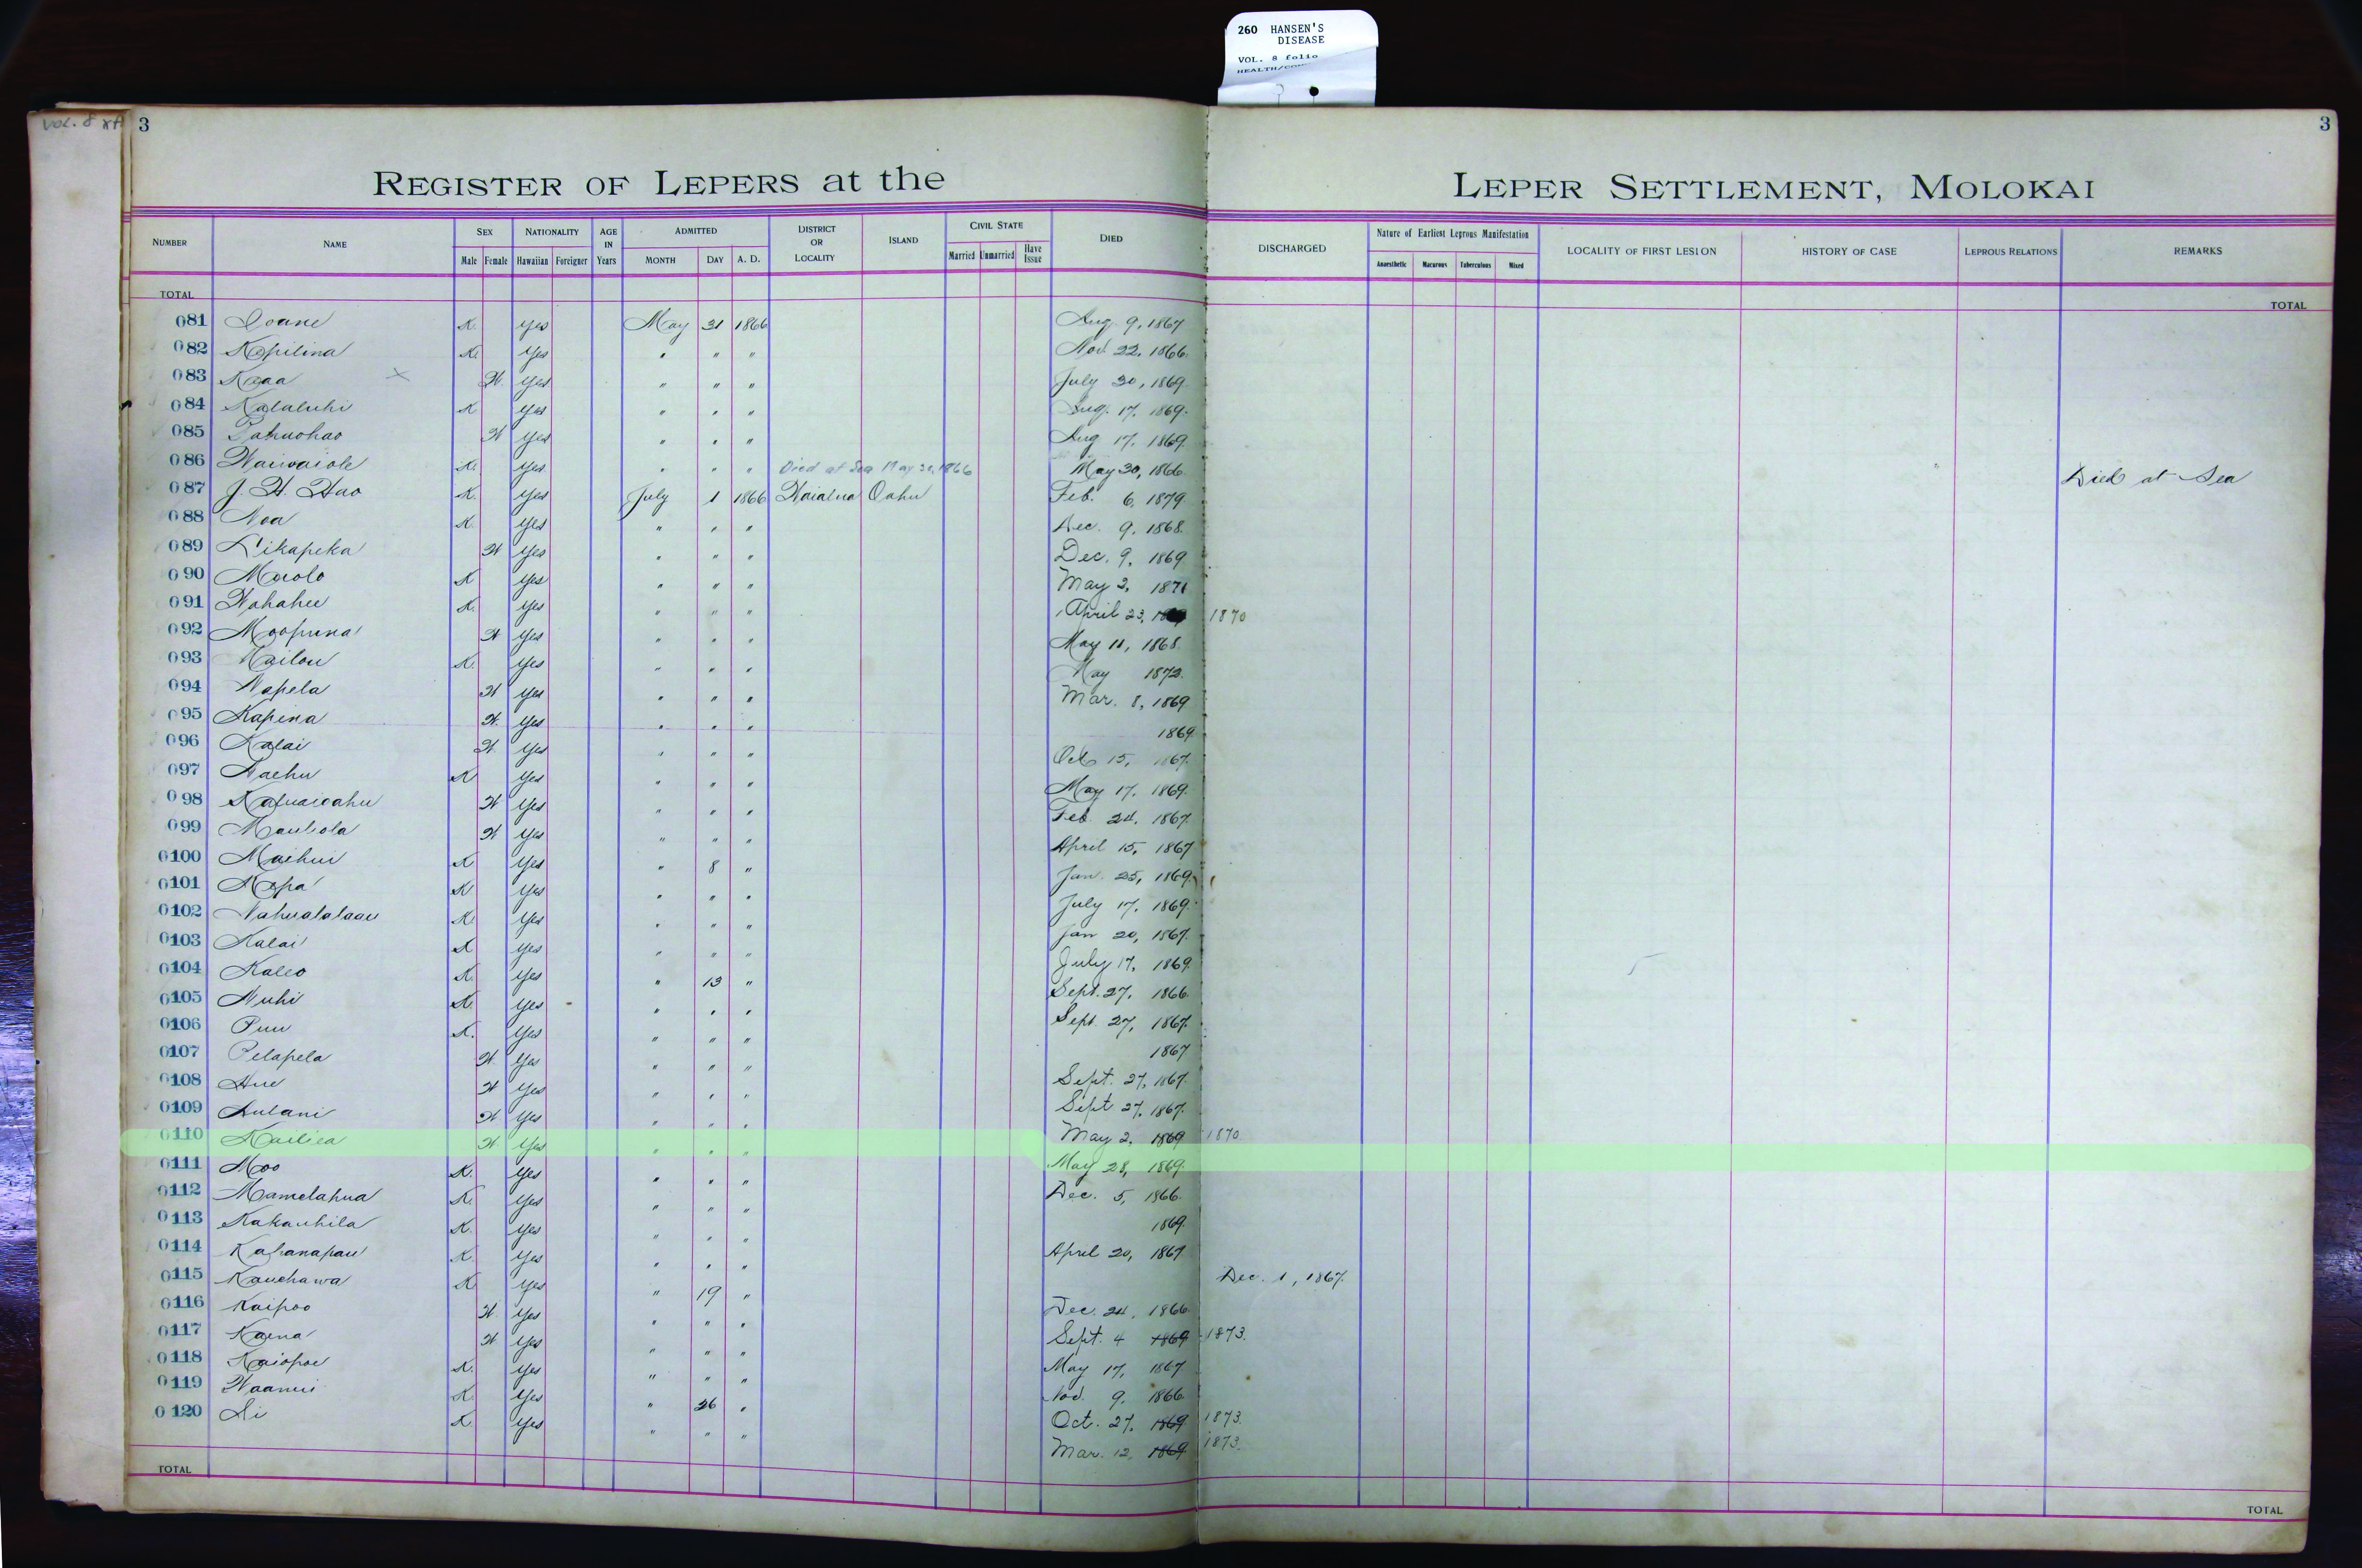 260 HANSEN'S
DISEASE
VOL. 8 folio
VOL. 8
3
3
REGISTER OF LEPERS at the LEPER SETTLEMENT, MOLOKAI
NUMBER NAME SEX Male Female NATIONALITY Hawaiian Foreigner AGE IN Years ADMITTED MONTH DAY A. D. DISTRICT OR LOCALITY ISLAND CIVIL STATE Married Unmarried Have Issue DIED DISCHARGED Nature of Earliest Leprous Manifestation Anaesthetic Macurous Tuberculous Mixed LOCALITY OF FIRST LESION HISTORY OF CASE LEPROUS RELATIONS REMARKS
TOTAL TOTAL
081 Ioane K. yes May 31 1866 Aug. 9, 1867
082 Kapilina K. Yes " " " Nov. 22, 1866.
083 Kaaa X W. Yes " " " July 30, 1869.
084 Kalaluhi K Yes " " " Aug. 17, 1869.
085 Pahuohao W Yes " " " Aug 17, 1869.
086 Waiwaiole K. Yes " " " Died at Sea May 30, 1866 May 30, 1866. Died at Sea
087 J. H. Hao K. Yes July 1 1866 Waialua Oahu Feb. 6, 1879
088 Noa K. Yes " " " Dec. 9, 1868.
089 Likapeka W Yes " " " Dec. 9, 1869
090 Maolo K Yes " " " May 2, 1871
091 Wahahee K. Yes " " " April 23, 1870
092 Moopuna W Yes " " " May 11, 1868.
093 Kailou K. Yes " " " May 1872.
094 Napela W Yes " " " Mar. 8, 1869
095 Kapena W. Yes " " " 1869.
096 Kalai W Yes " " " Oct 15, 1867.
097 Naehu K Yes " " " May 17, 1869.
098 W Yes " " " Feb. 24, 1867.
099 Mauliola W Yes " " " April 15, 1867
0100 Maihui K Yes " 8 " Jan. 25, 1869.
0101 Napa K Yes " " " July 17, 1869.
0102 Nahualalaau K Yes " " " Jan 20, 1867.
0103 Kalai K Yes " " " July 17, 1869.
0104 Kaleo K. Yes " 13 " Sept. 27, 1866.
0105 Nuhi K. Yes " " " Sept. 27, 1867.
0106 Puu K. Yes " " " 1867
0107 Pelapela W Yes " " " Sept. 27, 1867.
0108 Hue W Yes " " " Sept 27, 1867.
0109 Aulani W Yes " " " May 2, 1869 1870
0110 Kailiea W Yes " " " May 28, 1869.
0111 Moo K. Yes " " " Dec. 5, 1866.
0112 Mamelahua K. Yes " " " 1869.
0113 Kakauhila K. Yes " " " April 20, 1867
0114 Kahanapau K. Yes " " " Dec. 1, 1867.
0115 Kauehawa K. Yes " 19 " Dec. 24, 1866.
0116 Kaipoo W Yes " " " Sept. 4 1869 1873.
0117 Kaena W Yes " " " May 17, 1867
0118 Kaiopoe K. Yes " " " Nov. 9, 1866.
0119 Waanui K. Yes " 26 " Oct. 27, 1869 1873.
0120 Ai K. Yes " " " Mar. 12, 1869 1873.
TOTAL TOTAL